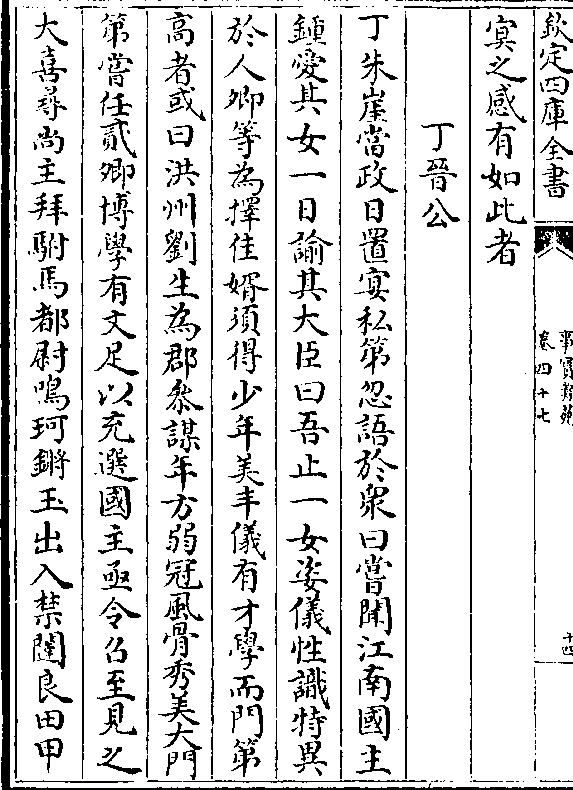 欽定四庫全書
事實類苑
卷四十七
十四
㝠之感有如此者
丁晉公
丁朱崖當政日置宴私第忽語於衆曰嘗聞江南國主
鍾愛其女一日諭其大臣曰吾止一女姿儀性識特異
於人卿等為擇佳婿須得少年美丰儀有才學而門第
高者或曰洪州劉生為郡叅謀年方弱冠風骨秀美大門
第嘗任貳卿博學有文足以充選國主亟令召至見之
大喜尋尚主拜駙馬都尉鳴珂鏘玉出入禁闥良田甲